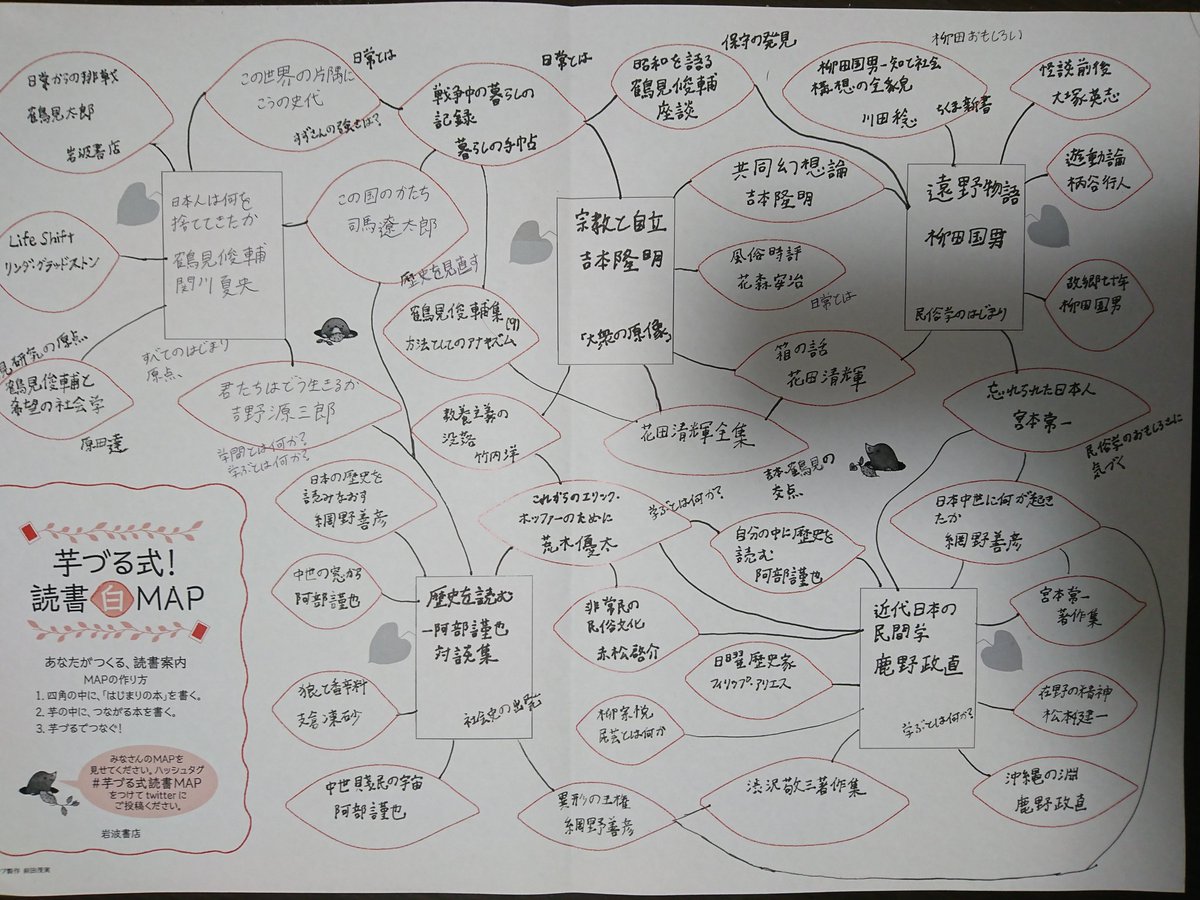 日常からの挑戦
鶴見太郎
岩波書店
この世界の片隅に
こうの史代
すずさんの強さは?
日常とは
戦争中の暮らしの
記録
暮らしの手帖
日常とは
昭和を語る
鶴見俊輔
座談
保守の発見
柳田国男―知と社会
構想の全貌
川田稔
ちくま新書
柳田おもしろい
怪談前後
大塚英志
日本人は何を
捨ててきたか
鶴見俊輔
関川夏央
すべてのはじまり
原点、
この国のかたち
司馬遼太郎
歴史を見直す
宗教と自立
吉本隆明
「大衆の原像」
共同幻想論
吉本隆明
遠野物語
柳田国男
民俗学のはじまり
遊動論
柄谷行人
Life Shift
リンダ・グラッドストン
風俗時評
花森安治
日常とは
故郷七十年
柳田国男
鶴見俊輔集(9)
方法としてのアナキズム
箱の話
花田清輝
見研究の原点、
鶴見俊輔と
希望の社会学
原田達
君たちはどう生きるか
吉野源三郎
学問とは何か?
学ぶとは何か?
教養主義の
没落
竹内洋
花田清輝全集
吉本・鶴見の
交点
忘れられた日本人
宮本常一
民俗学のおもしろさに
気づく
日本の歴史を
読みなおす
網野善彦
これからのエリック・
ホッファーのために
荒木優太
学ぶとは何か?
自分の中に歴史を
読む
阿部謹也
日本中世に何が起き
たか
網野善彦
中世の窓から
阿部謹也
歴史を読む
―阿部謹也
対談集
社会史の出発
非常民の
民俗文化
赤松啓介
近代日本の
民間学
鹿野政直
学ぶとは何か?
宮本常一
著作集
日曜歴史家
フィリップ・アリエス
狼と香辛料
支倉凍砂
柳宗悦
民芸とは何か
在野の精神
松本健一
中世賤民の宇宙
阿部謹也
異形の王権
網野善彦
渋沢敬三著作集
沖縄の淵
鹿野政直
芋づる式!
読書白MAP
あなたがつくる、読書案内
MAPの作り方
1. 四角の中に、「はじまりの本」を書く。
2. 芋の中に、つながる本を書く。
3. 芋づるでつなぐ!
みなさんのMAPを
見せてください。ハッシュタグ
#芋づる式読書MAP
をつけてtwitterに
ご投稿ください。
岩波書店